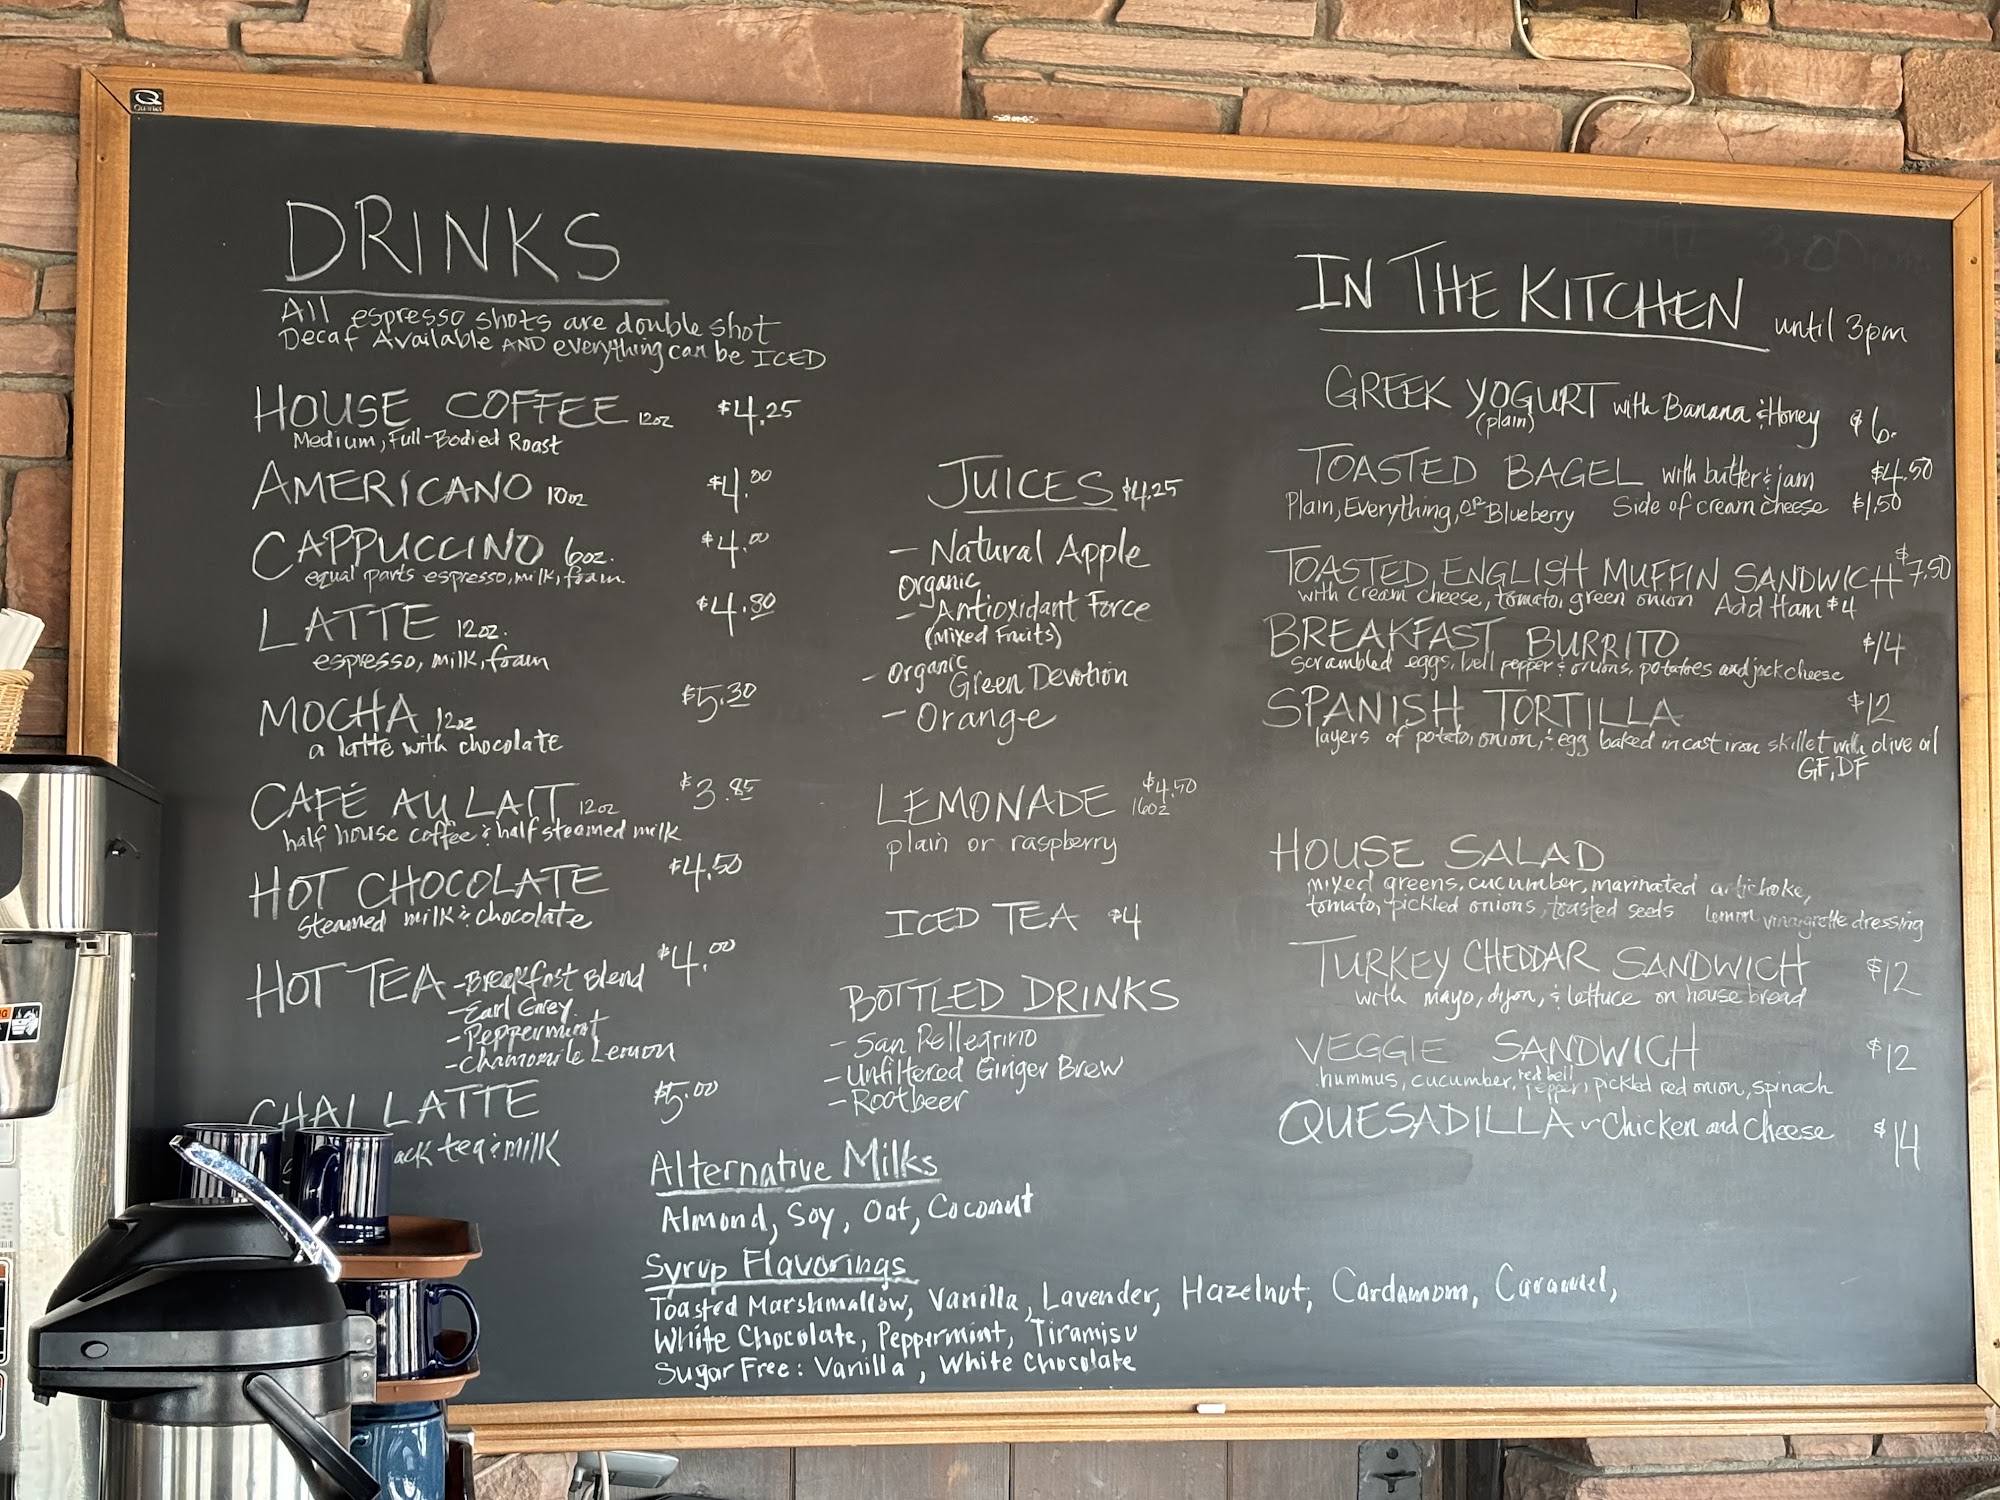 Quartet
DRINKS
All espresso shots are double shot
Decaf Available AND everything can be ICED
HOUSE COFFEE 12oz $4.25
Medium, Full-Bodied Roast
AMERICANO 10oz $4.00
CAPPUCCINO 6oz. $4.00
equal parts espresso, milk, foam.
LATTE 12oz. $4.80
espresso, milk, foam
MOCHA 12oz $5.30
a latte with chocolate
CAFÉ AU LAIT 12oz $3.85
half house coffee & half steamed milk
HOT CHOCOLATE $4.50
steamed milk & chocolate
HOT TEA - Breakfast Blend $4.00
- Earl Grey
- Peppermint
- Chamomile Lemon
CHAI LATTE $5.00
tea & milk
JUICES $4.25
- Natural Apple
Organic
- Antioxidant Force
(Mixed Fruits)
- Organic
Green Devotion
- Orange
LEMONADE $4.50
16oz
plain or raspberry
ICED TEA $4
BOTTLED DRINKS
- San Pellegrino
- Unfiltered Ginger Brew
- Rootbeer
Alternative Milks
Almond, Soy, Oat, Coconut
Syrup Flavorings
Toasted Marshmallow, Vanilla, Lavender, Hazelnut, Cardamom, Caramel,
White Chocolate, Peppermint, Tiramisu
Sugar Free: Vanilla, White Chocolate
IN THE KITCHEN until 3pm
GREEK YOGURT with Banana & Honey $6.
(plain)
TOASTED BAGEL with butter & jam $4.50
Plain, Everything, or Blueberry Side of cream cheese $1.50
TOASTED ENGLISH MUFFIN SANDWICH $7.50
with cream cheese, tomato, green onion Add Ham $4
BREAKFAST BURRITO $14
scrambled eggs, bell pepper & onions, potatoes and jack cheese
SPANISH TORTILLA $12
layers of potato, onion, & egg baked in cast iron skillet with olive oil
GF, DF
HOUSE SALAD
mixed greens, cucumber, marinated artichoke,
tomato, pickled onions, toasted seeds lemon vinaigrette dressing
TURKEY CHEDDAR SANDWICH $12
with mayo, dijon, & lettuce on house bread
VEGGIE SANDWICH $12
hummus, cucumber, red bell pepper, pickled red onion, spinach
QUESADILLA ~ Chicken and Cheese $14